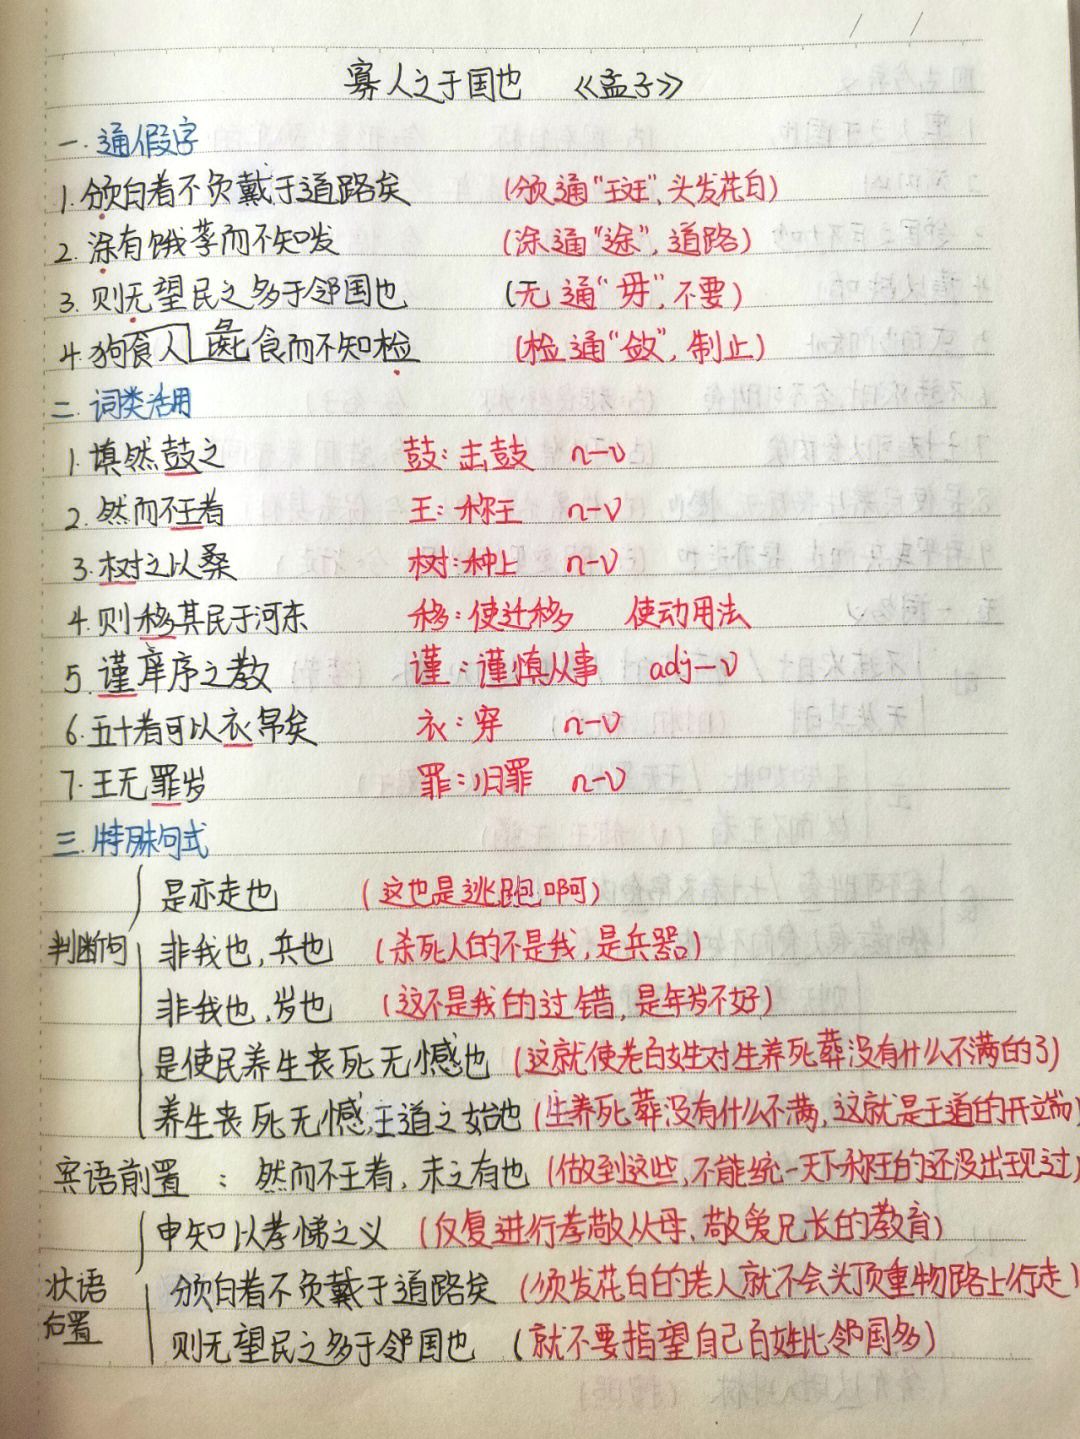 寡人之于国也 《孟子》
一.通假字
1.颁白者不负戴于道路矣 (颁通"斑",头发花白)
2.涂有饿莩而不知发 (涂通"途",道路)
3.则无望民之多于邻国也 (无通"毋",不要)
4.狗食人彘食而不知检 (检通"敛",制止)
二.词类活用
1.填然鼓之 鼓:击鼓 n-v
2.然而不王者 王:称王 n-v
3.树之以桑 树:种上 n-v
4.则移其民于河东 移:使迁移 使动用法
5.谨庠序之教 谨:谨慎从事 adj-v
6.五十者可以衣帛矣 衣:穿 n-v
7.王无罪岁 罪:归罪 n-v
三.特殊句式
是亦走也 (这也是逃跑啊)
判断句 非我也,兵也 (杀死人的不是我,是兵器)
非我也,岁也 (这不是我的过错,是年岁不好)
是使民养生丧死无憾也 (这就使老百姓对生养死葬没有什么不满的了)
养生丧死无憾,王道之始也 (生养死葬没有什么不满,这就是王道的开端)
宾语前置 : 然而不王者,未之有也 (做到这些,不能统一天下称王的还没出现过)
申知以孝悌之义 (反复进行孝敬父母,敬爱兄长的教育)
状语后置 颁白者不负戴于道路矣 (须发花白的老人就不会头顶重物路上行走)
则无望民之多于邻国也 (就不要指望自己百姓比邻国多)